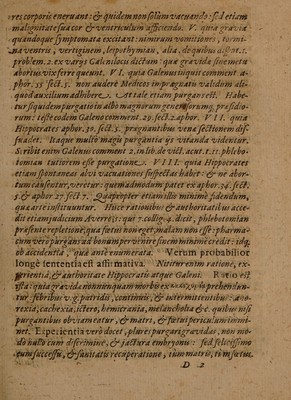 res corporis eneruant : & quidem non solum vacuando : sed etiam
malignitate sua cor & ventriculum afficiendo. V. quia grauia
quandoque symptomata excitant : mouerunt vomitiones, tormi-
na ventris, vertiginem, leipothymiam, alia, de quibus disput. 1.
problem. 2. ex varijs Galeni locis dictum : quæ grauida sine metu
abortus vix ferre queunt. VI. quia Galenus inquit comment. a-
phor. 55. sect. 5. non audere Medicos imprægnatis validum ali-
quod auxilium adhibere. At tale etiam purgans est. Habe-
tur siquidem purgatio in albo magnorum generosorumq; præsidio-
rum : teste eodem Galeno comment. 29. sect. 2. aphor. VII. quia
Hippocrates aphor. 30. sect. 5. prægnantibus vena sectionem dis-
suadet. Itaque multo magis purgantia ijs vitanda videntur.
Scribit enim Galenus comment. 2. in lib. de vict. acut. t. 11. phlebo-
tomiam tutiorem esse purgatione. VIII. quia Hippocrates
etiam spontaneas alui vacuationes suspectas habet : & ne abor-
tum causentur, veretur : quemadmodum patet ex aphor. 34. sect.
5. & aphor. 27. sect. 7. Quapropter etiam illis minime fidendum,
quæ arte instituuntur. Hisce rationibus & authoritatibus acce-
dit etiam judicium Averrois : qui 7. collig. 4. dicit, phlebotomian
præsente repletione, quæ fœtui non eget, malam non esse : pharma-
cum vero purgans ad bonum pervenire sine minime credit : idq;
ob accidentia, quæ ante enumerata. Verum probabilior
longè sententia est affirmativa. Nititur enim ratione, ex-
perientia, & authoritate Hippocratis atque Galeni. Ratio est
ista : quia grauida non nunquam morbis prehendun-
tur febribus v. g. putridis, continuis, & intermittentibus : ano-
rexia, cachexia, ictero, hemicrania, melancholia & c. quibus nisi
purgantibus obviam eatur, & matri, & fœtui periculum immi-
net. Experientia verò docet, plures purgari grauidas, non mo-
do nullo cum discrimine, & jactura embryonis : sed felicissimo
cum successu, & sanitatis recuperatione, tum matris, tum fœtus.
D 2